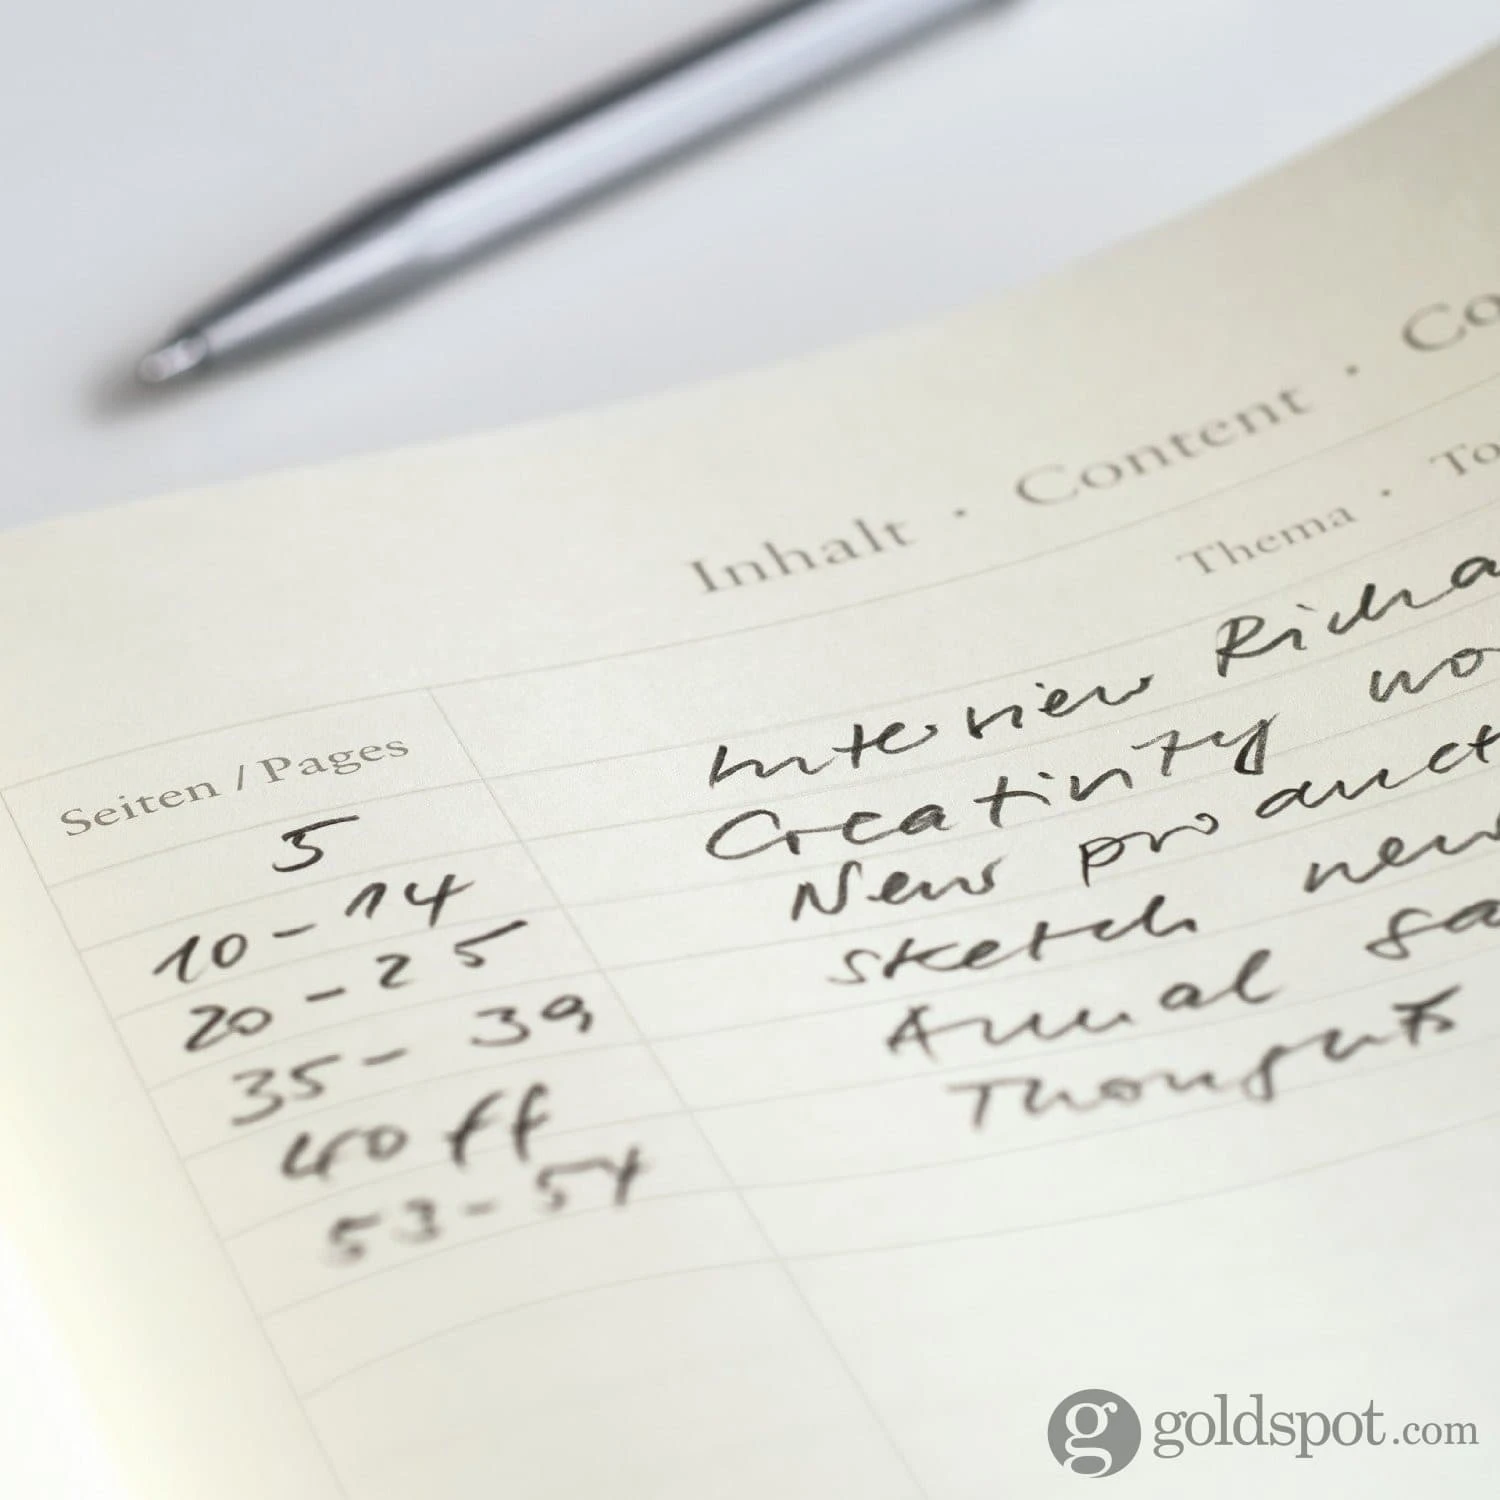 Inhalt · Content · Co
Thema · To
Seiten / Pages
5 Interview Richa
10 - 14 Creativity wo
20 - 25 New product
35 - 39 Sketch new
40 ff Annual sa
53 - 54 Thoughts
g goldspot.com